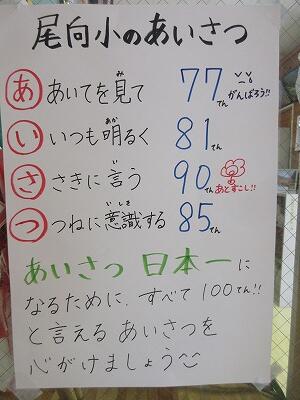 尾向小のあいさつ
あ あいてを見て 77てん がんばろう!!
い いつも明るく 81てん
さ さきに言う 90てん あとすこし!!
つ つねに意識する 85てん
あいさつ 日本一に
なるために、すべて100てん!!
と言える あいさつを
心がけましょう